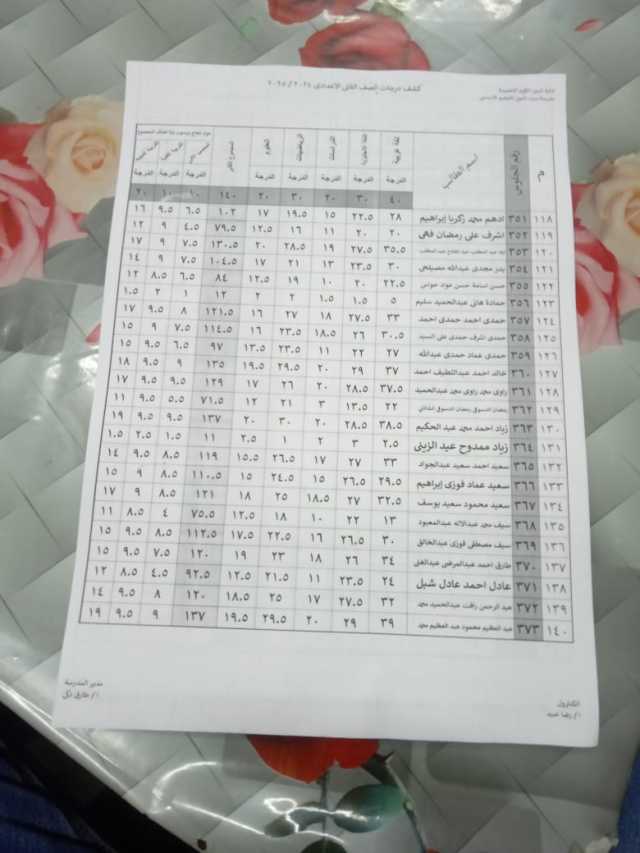 كشف درجات الصف الثانى الاعدادى ٢٠٢٤ / ٢٠٢٥
م رقم الجلوس اسم الطالب لغة عربية اللغة الانجليزية الدراسات الرياضيات العلوم
الدرجة الدرجة الدرجة الدرجة الدرجة الدرجة الدرجة الدرجة
٤٠ ٣٠ ٢٠ ٣٠ ٢٠ ١٤٠ ١٠ ١٠ ٢٠
١١٨ ٣٥١ ادهم محمد زكريا إبراهيم ٢٨ ٢٢.٥ ١٥ ١٩.٥ ١٧ ١٠٢ ٦.٥ ٩.٥ ١٦
١١٩ ٣٥٢ اشرف على رمضان فهمى ٢٠ ٢٠ ١١ ١٦ ١٢.٥ ٧٩.٥ ٤.٥ ٩ ١٢
١٢٠ ٣٥٣ ٣٥.٥ ٢٧.٥ ١٩ ٢٨.٥ ٢٠ ١٣٠.٥ ٧.٥ ٩ ١٧
١٢١ ٣٥٤ بدر مجدى عبدالله مصيلحى ٣٠ ٢٣.٥ ١٣ ٢١ ١٧ ١٠٤.٥ ٧.٥ ٩ ١٤
١٢٢ ٣٥٥ حسن اسامة حسن عواد ٢٢.٥ ٢٠ ١٠ ١٩ ١٢.٥ ٨٤ ٦.٥ ٨.٥ ١٢
١٢٣ ٣٥٦ حمادة هانى عبدالحميد سليم ٥ ١.٥ ١.٥ ٢ ٢ ١٢ ١ ٢ ١.٥
١٢٤ ٣٥٧ حمدى احمد حمدى احمد ٣٣ ٢٧.٥ ١٨ ٢٧ ١٦ ١٢١.٥ ٨ ٩.٥ ١٧
١٢٥ ٣٥٨ حمدى اشرف حمدى على السيد ٣٠.٥ ٢٦ ١٨.٥ ٢٣.٥ ١٦ ١١٤.٥ ٧.٥ ٩ ١٥
١٢٦ ٣٥٩ حمدى عماد حمدى عبدالله ٢٧ ٢٢ ١١ ٢٣.٥ ١٣.٥ ٩٧ ٦.٥ ٩.٥ ١٥
١٢٧ ٣٦٠ خالد احمد عبداللطيف احمد ٣٧ ٢٩ ٢٠ ٢٩.٥ ١٩.٥ ١٣٥ ٩ ٩.٥ ١٨
١٢٨ ٣٦١ راوى محمد راوى محمد عبدالحميد ٣٧.٥ ٢٨.٥ ٢٠ ٢٦ ١٧ ١٢٩ ٩.٥ ٩.٥ ١٧
١٢٩ ٣٦٢ رمضان الدسوقى رمضان الدسوقى ٢٢ ١٣.٥ ٣ ٢١ ١٢ ٧١.٥ ٥.٥ ٩.٥ ١١
١٣٠ ٣٦٣ زياد احمد محمد عبد الحكيم ٣٨.٥ ٢٨.٥ ٢٠ ٣٠ ٢٠ ١٣٧ ٩.٥ ٩.٥ ١٩
١٣١ ٣٦٤ زياد ممدوح عبد الزينى ٢.٥ ٣ ٢ ١ ٢.٥ ١١ ١.٥ ٢.٥ ١.٥
١٣٢ ٣٦٥ سعيد احمد سعيد عبدالجواد ٣٣ ٢٧ ١٧ ٢٦.٥ ١٥.٥ ١١٩ ٨.٥ ٩.٥ ١٤
١٣٣ ٣٦٦ سعيد عماد فوزى إبراهيم ٢٩.٥ ٢٦.٥ ١٥ ٢٤.٥ ١٥ ١١٠.٥ ٨.٥ ٩ ١٥
١٣٤ ٣٦٧ سعيد محمود سعيد يوسف ٣٢.٥ ٢٧ ١٨.٥ ٢٥ ١٨ ١٢١ ٨.٥ ٩ ١٧
١٣٥ ٣٦٨ سيف محمد عبدالاله عبدالمعبود ١٣ ٢٢ ١٠ ١٨ ١٢.٥ ٧٥.٥ ٤ ٨.٥ ١١
١٣٦ ٣٦٩ سيف مصطفى فوزى عبدالخالق ٣٠ ٢٦.٥ ١٦ ٢٢.٥ ١٧.٥ ١١٢.٥ ٨.٥ ٩.٥ ١٥
١٣٧ ٣٧٠ طارق احمد عبدالمرضى ٣٤ ٢٦ ١٨ ٢٣ ١٩ ١٢٠ ٧.٥ ٩.٥ ١٥
١٣٨ ٣٧١ عادل احمد عادل شبل ٢٤ ٢٣.٥ ١١ ٢١.٥ ١٢.٥ ٩٢.٥ ٤.٥ ٨.٥ ١٢
١٣٩ ٣٧٢ عبد الرحمن رافت عبدالحميد محمد ٣٢ ٢٧.٥ ١٧ ٢٥ ١٨.٥ ١٢٠ ٨ ٩.٥ ١٤
١٤٠ ٣٧٣ عبد العظيم محمود عبد العظيم محمد ٣٩ ٢٩ ٢٠ ٢٩.٥ ١٩.٥ ١٣٧ ٩ ٩.٥ ١٩
الكنترول
أ/ رضا عبيد
مدير المدرسة
أ/ طارق